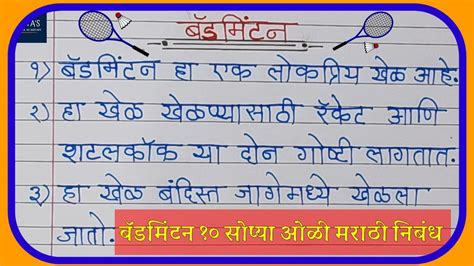 बॅडमिंटन
१) बॅडमिंटन हा एक लोकप्रिय खेळ आहे.
२) हा खेळ खेळण्यासाठी रॅकेट आणि
शटलकॉक या दोन गोष्टी लागतात.
३) हा खेळ बंदिस्त जागेमध्ये खेळला
जातो.
बॅडमिंटन १० सोप्या ओळी मराठी निबंध